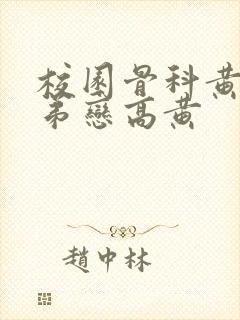 校園骨科黃
弟戀高黃
趙中林